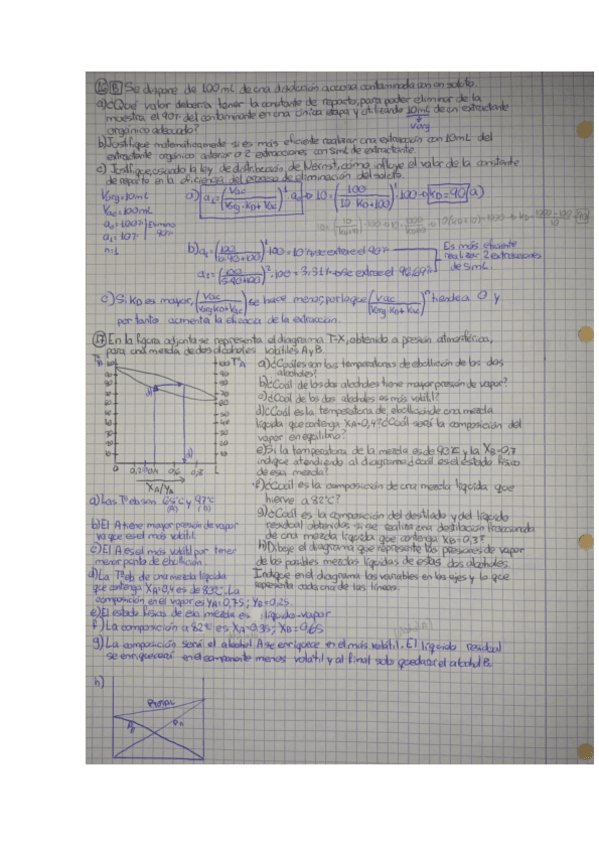 16 B Se dispone de 100mL de una disolución acuosa contaminada con un soluto.
a) ¿Qué valor debería tener la constante de reparto, para poder eliminar de la
muestra el 90% del contaminante en una única etapa y utilizando 10mL de un extractante
orgánico adecuado?
Vorg
b) Justifique matemáticamente si es más eficiente realizar una extracción con 10mL del
extractante orgánico anterior o 2 extracciones con 5mL de extractante.
c) Justifique usando la ley de distribución de Nernst, cómo influye el valor de la constante
de reparto en la eficiencia del proceso de eliminación del soluto.
Vorg=10mL
Vac=100mL
a0=100%
a1=10%
Elimino 90%
n=1
a) a1=(Vac/(Vorg·KD+Vac))^1·a0 → 10=(100/(10·KD+100))^1·100 → KD=90 (a)
b) a1=(100/(10·90+100))^1·100=10% se extrae el 90%
a2=(100/(5·90+100))^2·100=3,31% se extrae el 96,69%
Es más eficiente
realizar 2 extracciones
de 5mL.
c) Si KD es mayor, (Vac/(Vorg KD+Vac)) se hace menor, por lo que (Vac/(Vorg KD+Vac))^n tiende a 0 y
por tanto aumenta la eficacia de la extracción.
17 En la figura adjunta se representa el diagrama T-X, obtenido a presión atmosférica,
para una mezcla de dos alcoholes volátiles A y B.
TªB
TªA
0 0,2 0,4 0,6 0,8
XA/YA
a) ¿Cuáles son las temperaturas de ebullición de los dos
alcoholes?
b) ¿Cuál de los dos alcoholes tiene mayor presión de vapor?
c) ¿Cuál de los dos alcoholes es más volátil?
d) ¿Cuál es la temperatura de ebullición de una mezcla
líquida que contenga XA=0,4? ¿Cuál será la composición del
vapor en equilibrio?
e) Si la temperatura de la mezcla es de 90ºC y la XB=0,7
indique atendiendo al diagrama ¿cuál es el estado físico
de esa mezcla?
f) ¿Cuál es la composición de una mezcla líquida que
hierve a 82ºC?
g) ¿Cuál es la composición del destilado y del líquido
residual obtenidos si se realiza una destilación fraccionada
de una mezcla líquida que contenga XB=0,3?
h) Dibuje el diagrama que represente las presiones de vapor
de las posibles mezclas líquidas de estos dos alcoholes.
Indique en el diagrama las variables en los ejes y lo que
representa cada una de las líneas.
a) Las Tªeb son
y 97ºC
(A) (B)
b) El A tiene mayor presión de vapor
ya que es el más volátil.
c) El A es el más volátil por tener
menor punto de ebullición.
d) La Tªeb de una mezcla líquida
que contenga XA=0,4 es de 83ºC. La
composición en el vapor es YA=0,75; YB=0,25.
e) El estado físico de esa mezcla es líquido-vapor
f) La composición a 82ºC es XA=0,35; XB=0,65
g) La composición será el alcohol A se enriquece en el más volátil. El líquido residual
se enriquecerá en el componente menos volátil y al final solo quedará el alcohol B.
h)
PTOTAL
PB
PA